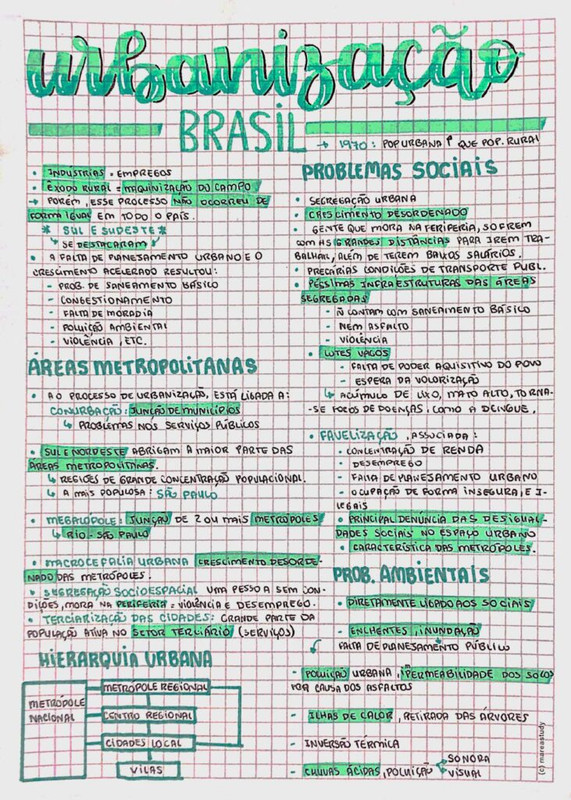 urbanização
BRASIL
→ 1970: POP URBANA ↑ QUE POP. RURAL
• INDÚSTRIAS • EMPREGOS
• ÊXODO RURAL = MAQUINIZAÇÃO DO CAMPO
→ PORÉM, ESSE PROCESSO NÃO OCORREU DE
FORMA IGUAL EM TODO O PAÍS.
* SUL E SUDESTE *
↳ SE DESTACARAM
• A FALTA DE PLANEJAMENTO URBANO E O
CRESCIMENTO ACELERADO RESULTOU:
- PROB. DE SANEAMENTO BÁSICO
- CONGESTIONAMENTO
- FALTA DE MORADIA
- POLUIÇÃO AMBIENTAL
- VIOLÊNCIA, ETC.
ÁREAS METROPOLITANAS
• AO PROCESSO DE URBANIZAÇÃO, ESTÁ LIGADA A:
CONURBAÇÃO: JUNÇÃO DE MUNICÍPIOS
↳ PROBLEMAS NOS SERVIÇOS PÚBLICOS
• SUL E NORDESTE ABRIGAM A MAIOR PARTE DAS
ÁREAS METROPOLITINAS.
↳ REGIÕES DE GRANDE CONCENTRAÇÃO POPULACIONAL.
↳ A MAIS POPULOSA: SÃO PAULO
• MEGALÓPOLE: JUNÇÃO DE 2 OU MAIS METRÓPOLES
↳ RIO - SÃO PAULO
• MACROCEFALIA URBANA CRESCIMENTO DESORDE-
NADO DAS METRÓPOLES.
• SEGREGAÇÃO SOCIOESPACIAL UMA PESSOA SEM CON-
DIÇÕES, MORA NA PERIFERIA = VIOLÊNCIA E DESEMPREGO.
• TERCIARIZAÇÃO DAS CIDADES: GRANDE PARTE DA
POPULAÇÃO ATIVA NO SETOR TERCIÁRIO (SERVIÇOS)
HIERARQUIA URBANA
METRÓPOLE
NACIONAL
METRÓPOLE REGIONAL
CENTRO REGIONAL
CIDADES LOCAL
VILAS
PROBLEMAS SOCIAIS
• SEGREGAÇÃO URBANA
• CRESCIMENTO DESORDENADO
• GENTE QUE MORA NA PERIFERIA, SOFREM
COM AS GRANDES DISTÂNCIAS PARA IREM TRA-
BALHAR, ALÉM DE TEREM BAIXOS SALÁRIOS.
• PRECÁRIAS CONDIÇÕES DE TRANSPORTE PUBL.
• PÉSSIMAS INFRAESTRUTURAS DAS ÁREAS
SEGREGADAS
- Ñ CONTAM COM SANEAMENTO BÁSICO
- NEM ASFALTO
- VIOLÊNCIA
• LOTES VAGOS
- FALTA DE PODER AQUISITIVO DO POVO
- ESPERA DA VOLORIZAÇÃO
↳ ACÚMULO DE LIXO, MATO ALTO, TORNA-
-SE FOCOS DE DOENÇAS, COMO A DENGUE.
• FAVELIZAÇÃO, ASSOCIADA:
- CONCENTRAÇÃO DE RENDA
- DESEMPREGO
- FALTA DE PLANEJAMENTO URBANO
- OCUPAÇÃO DE FORMA INSEGURA, E I-
LEGAIS
• PRINCIPAL DENÚNCIA DAS DESIGUAL-
DADES SOCIAIS NO ESPAÇO URBANO
• CARACTERÍSTICA DAS METRÓPOLES.
PROB. AMBIENTAIS
• DIRETAMENTE LIGADO AOS SOCIAIS
• ENCHENTES, INUNDAÇÃO
FALTA DE PLANEJAMENTO PÚBLICO
- POLUIÇÃO URBANA, PERMEABILIDADE DOS SOLO
POR CAUSA DOS ASFALTOS
- ILHAS DE CALOR, RETIRADA DAS ÁRVORES
- INVERSÃO TÉRMICA
- CHUVAS ÁCIDAS, POLUIÇÃO
SONORA
VISUAL
(c) mareastudy